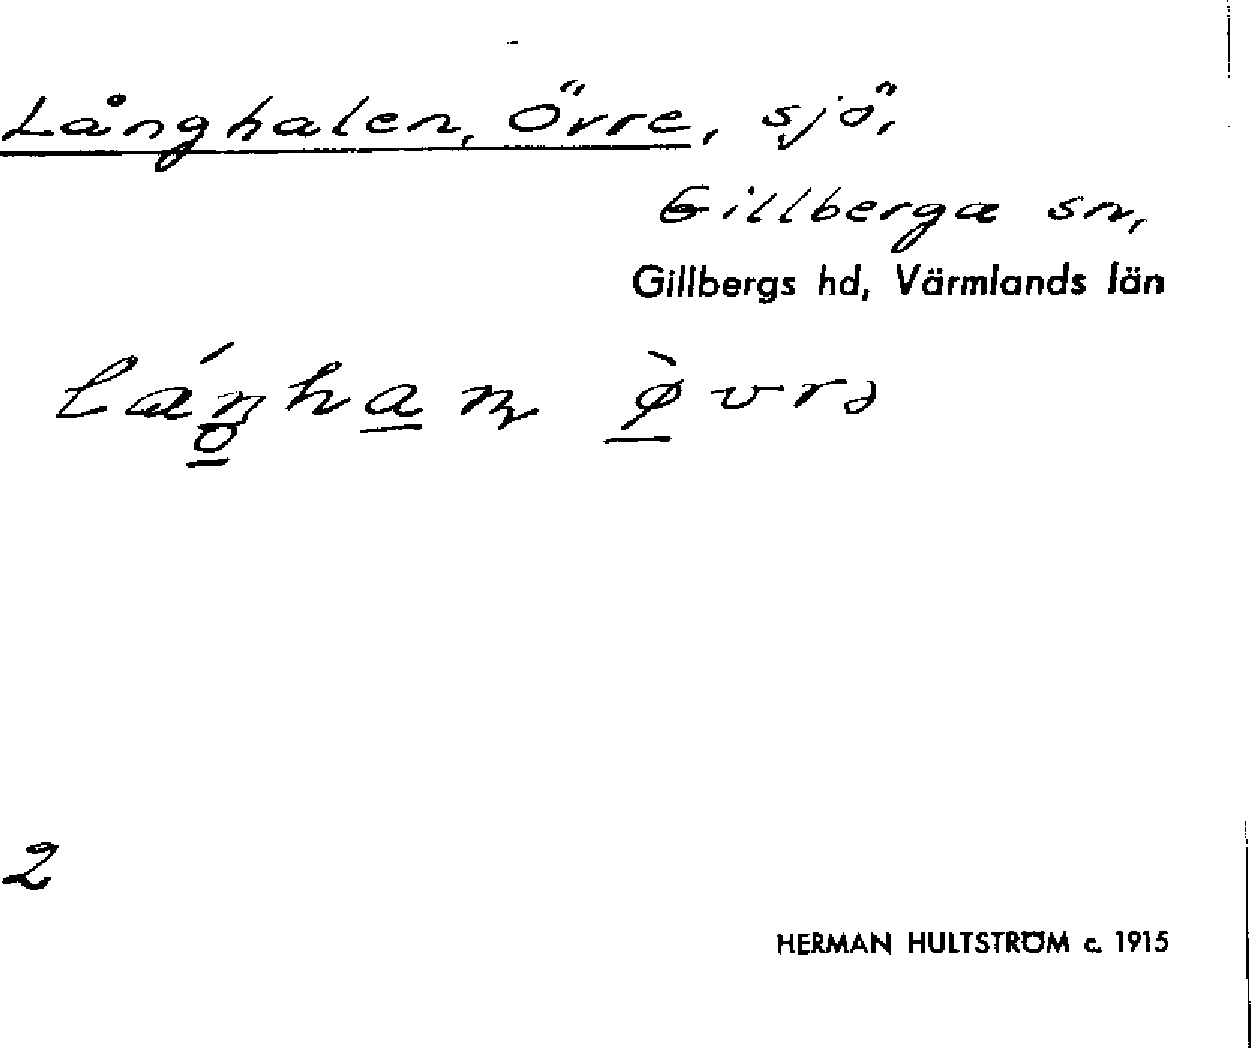 Långhalen, Övre, sjö,
Gillberga sn,
Gillbergs hd, Värmlands län
2
HERMAN HULTSTRÖM c. 1915